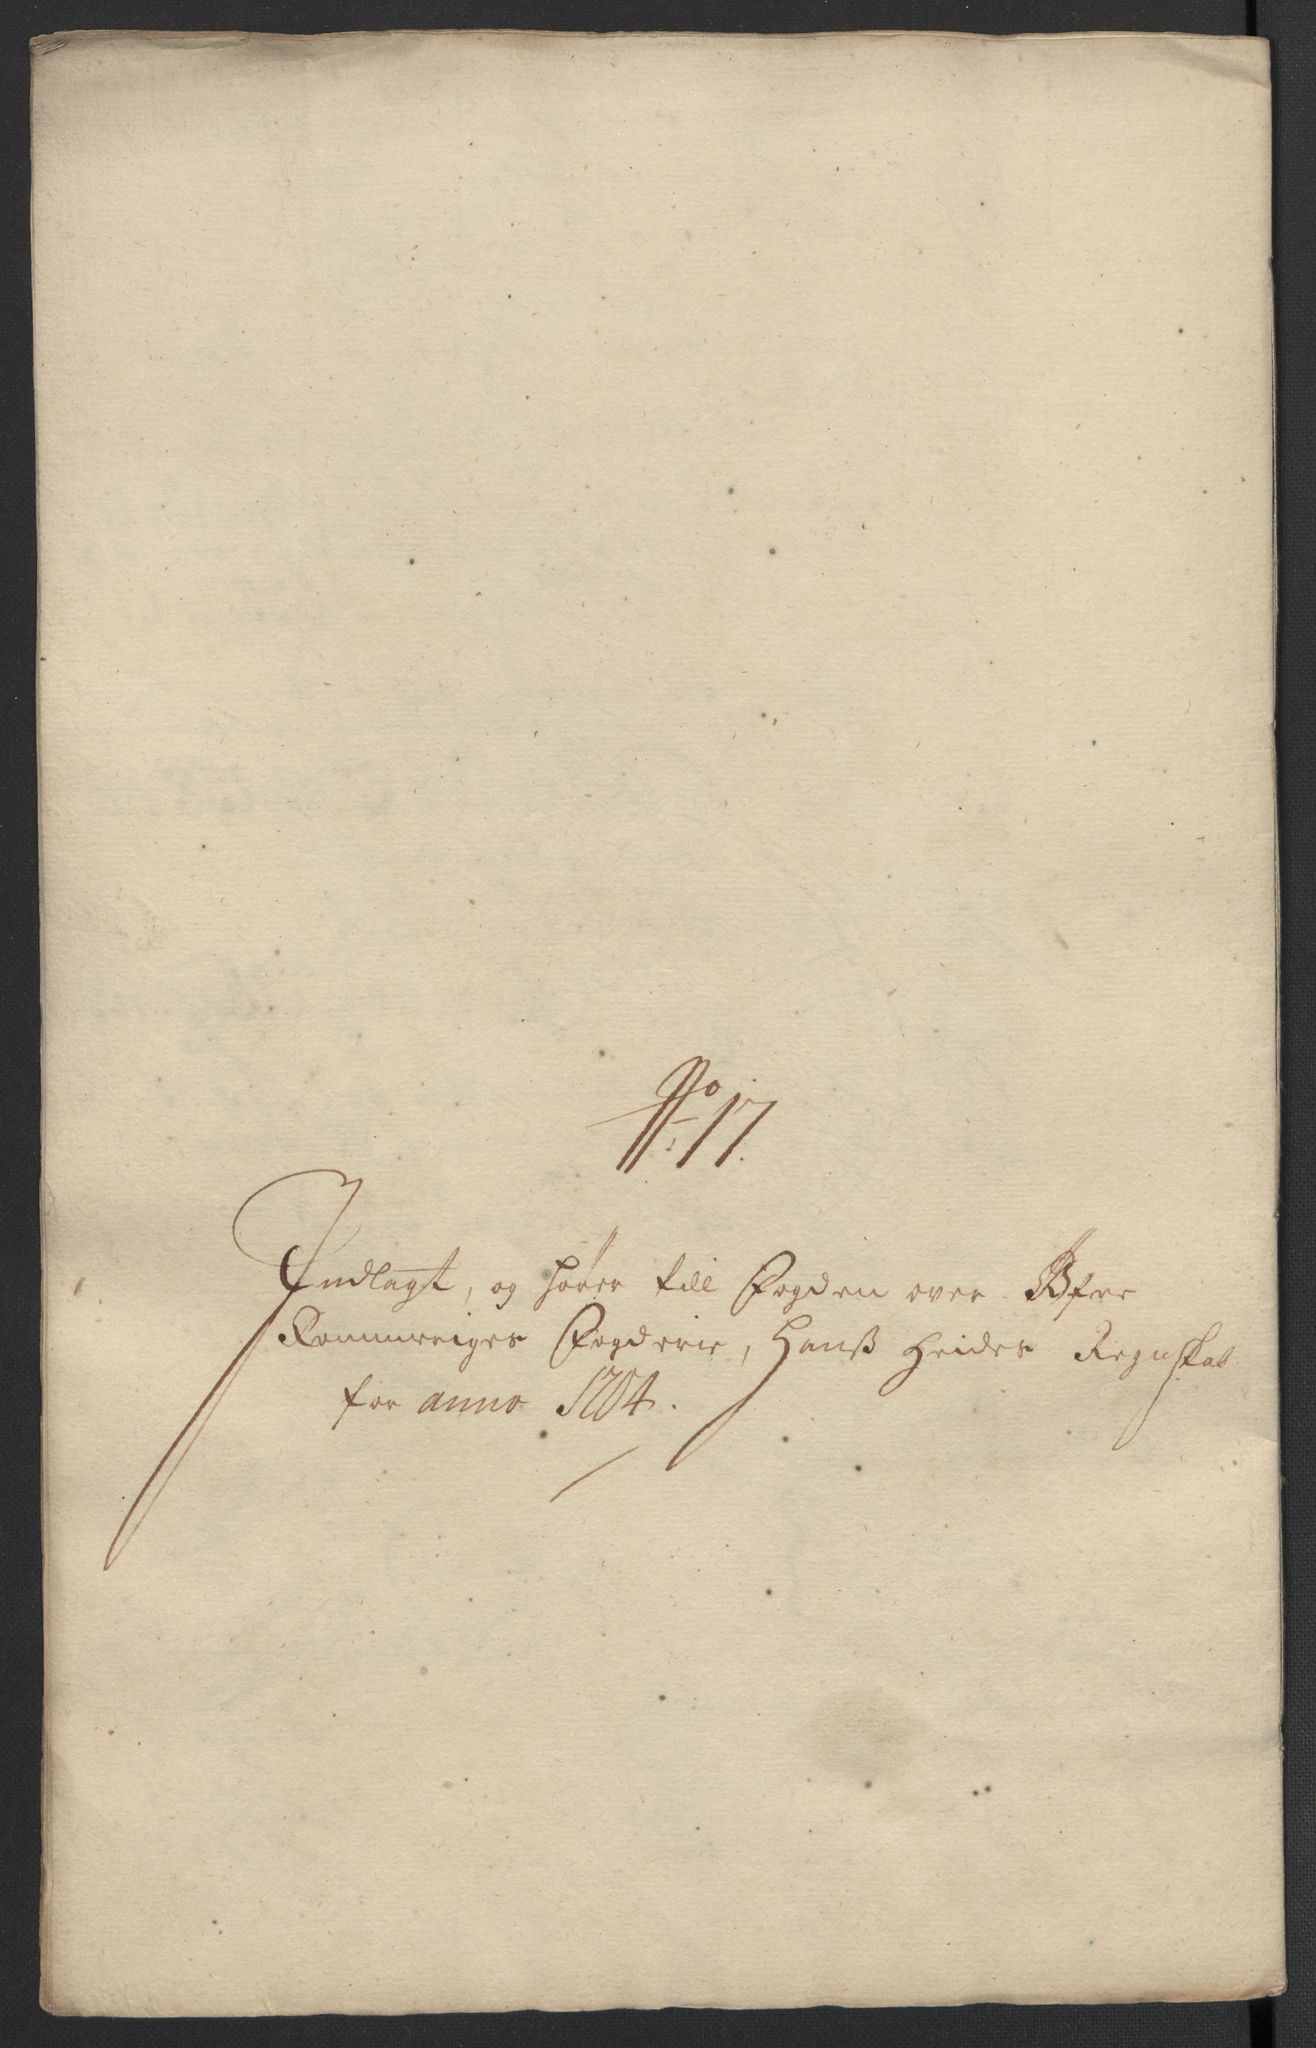 No 17.
Indlagt, og hører till Fogden over Øfre
Rommeriges Fogderie, Hanß Heides Regnskab
for anno 1704.